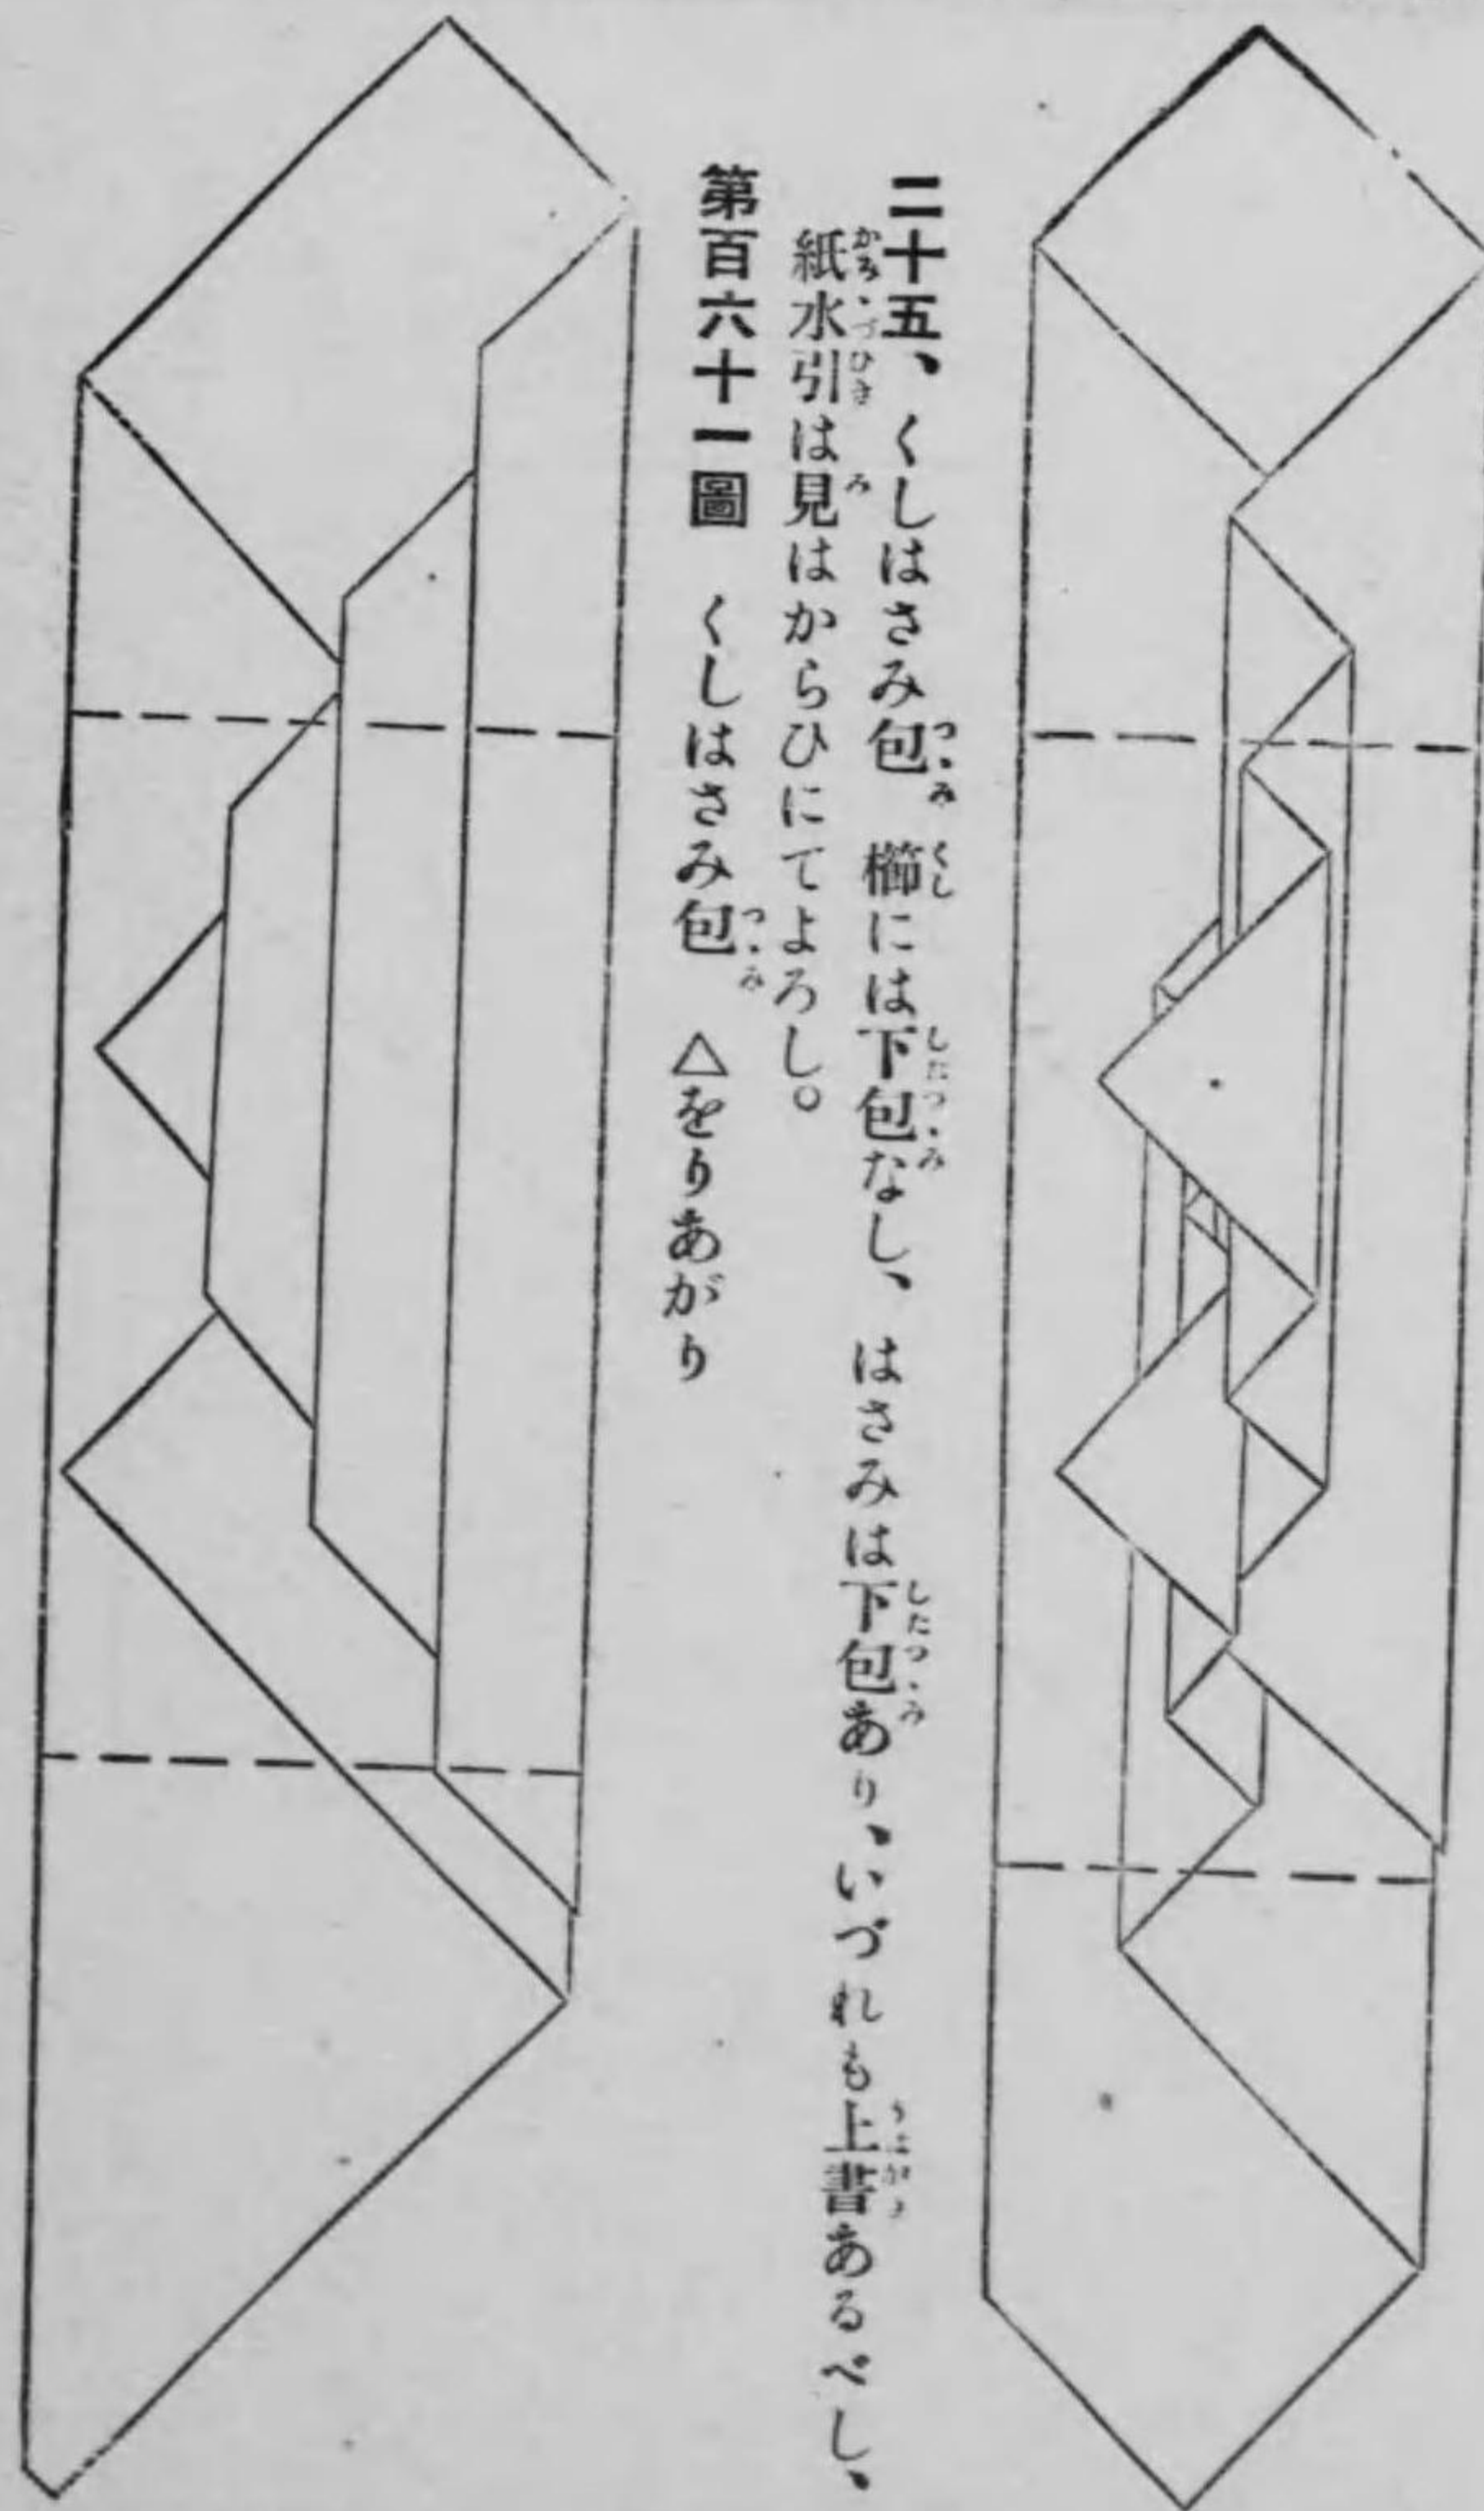 二十五、くしはさみ包　櫛には下包なし、はさみは下包あり、いづれも上書あるべし、
紙水引は見はからひにてよろし。
第百六十一圖　くしはさみ包　△をりあがり